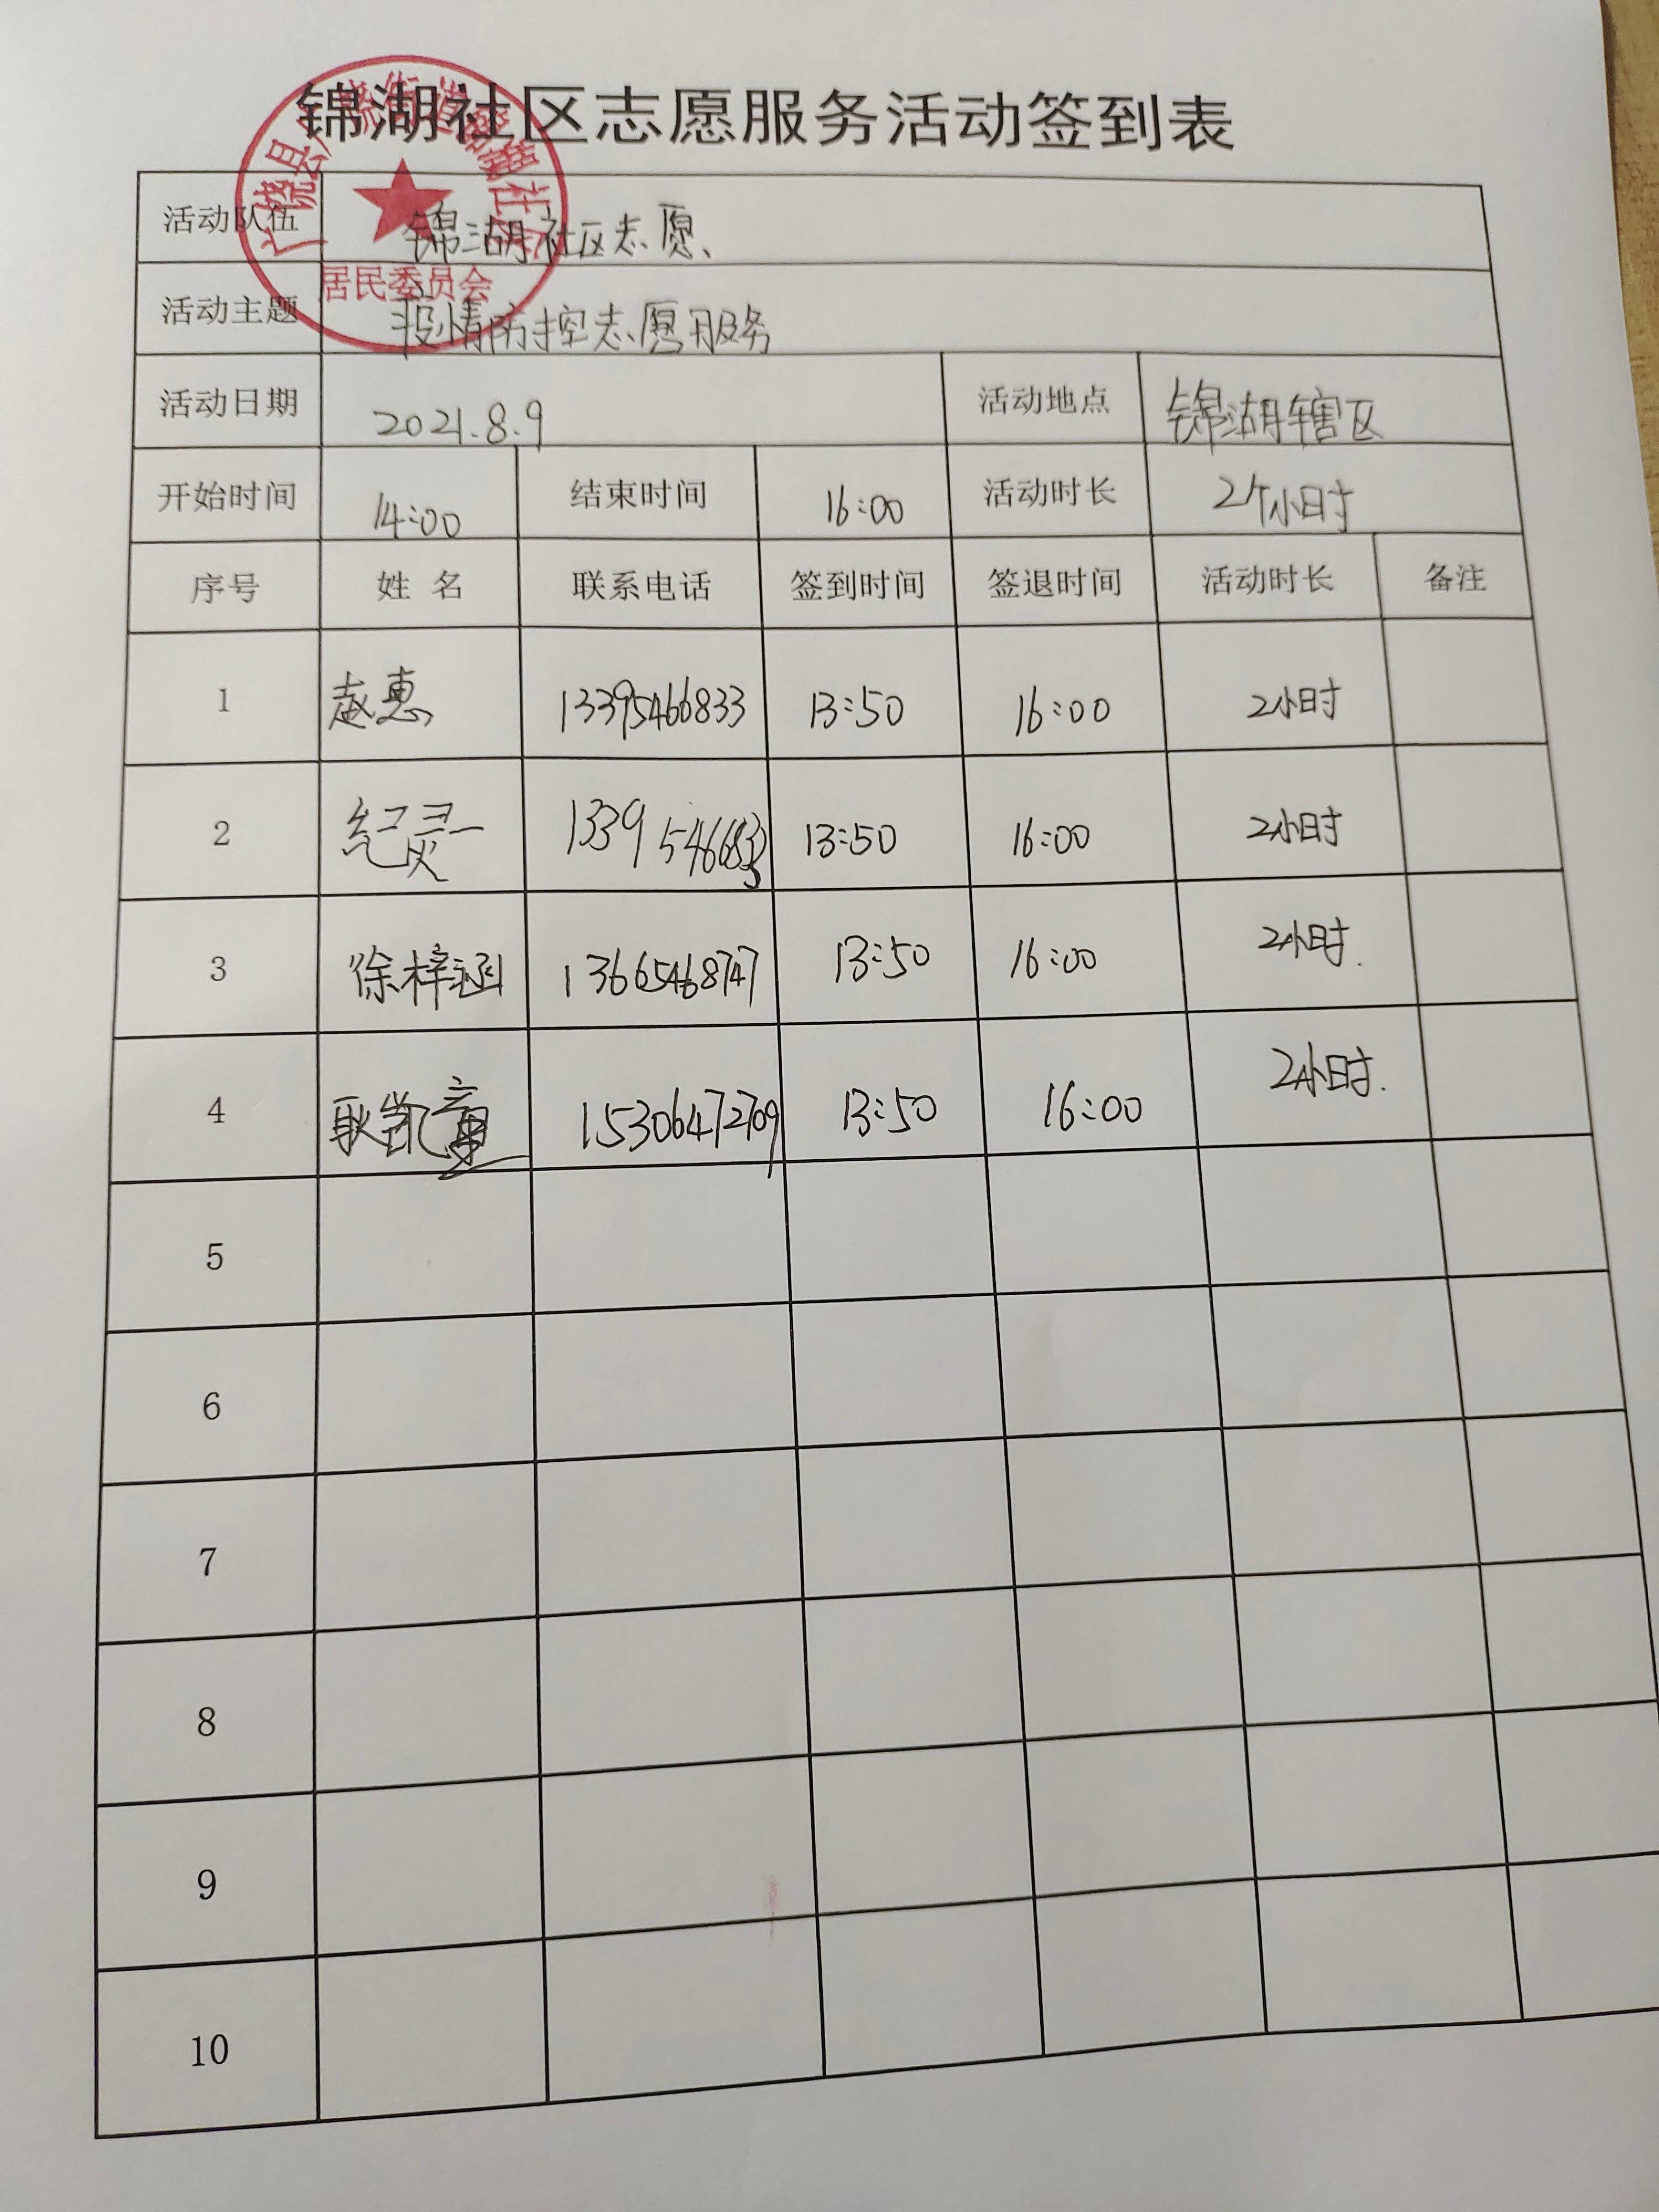 锦湖社区志愿服务活动签到表
活动队伍 锦湖社区志愿、
居民委员会
活动主题 疫情防控志愿服务
活动日期 2021.8.9 活动地点 锦湖辖区
开始时间 14:00 结束时间 16:00 活动时长 2个小时
序号 姓 名 联系电话 签到时间 签退时间 活动时长 备注
1 赵惠 13395466833 13:50 16:00 2小时
2 纪灵一 13395466833 13:50 16:00 2小时
3 徐梓涵 13665468747 13:50 16:00 2小时.
4 耿凯 15306472709 13:50 16:00 2小时.
5
6
7
8
9
10